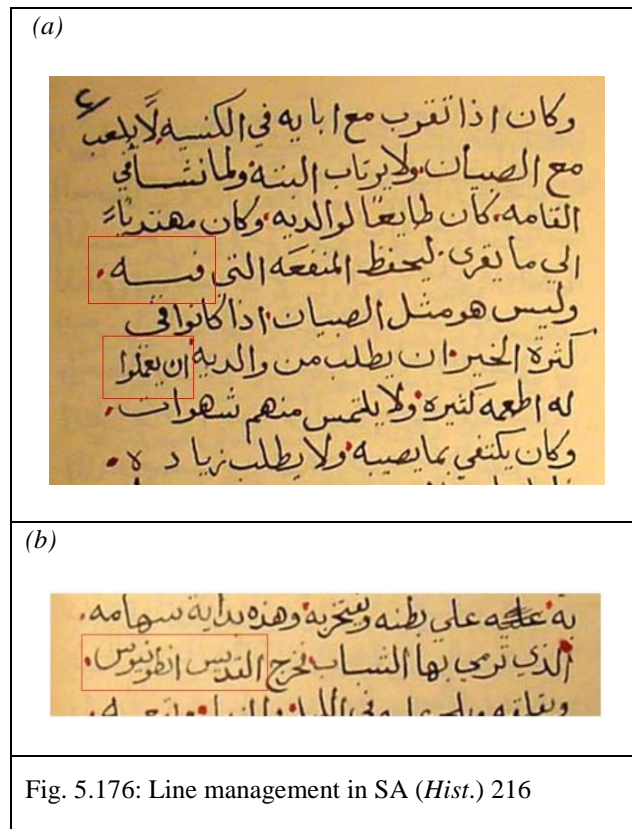 (a)
وكان اذا تقرب مع ابايه في الكنسيه لا يلعب
مع الصبيان ولا يرتاب البتة ولما نشا في
القامه كان طايعا لوالديه وكان مهتديا
الي ما يقرى ليحفظ المنفعه التي فيه
وليس هو مثل الصبيان اذا كانوا في
كثرة الخير ان يطلب من والديه ان يعملوا
له اطعمه كثيره ولا يلتمس منهم شهوات
وكان يكتفي بما يصيبه ولا يطلب زيا د ه
(b)
به عليه علي بطنه ويفتخر به وهذه بداية سهامه
الذي ترمي بها الشباب فخرج القديس انطونيوس
Fig. 5.176: Line management in SA (Hist.) 216